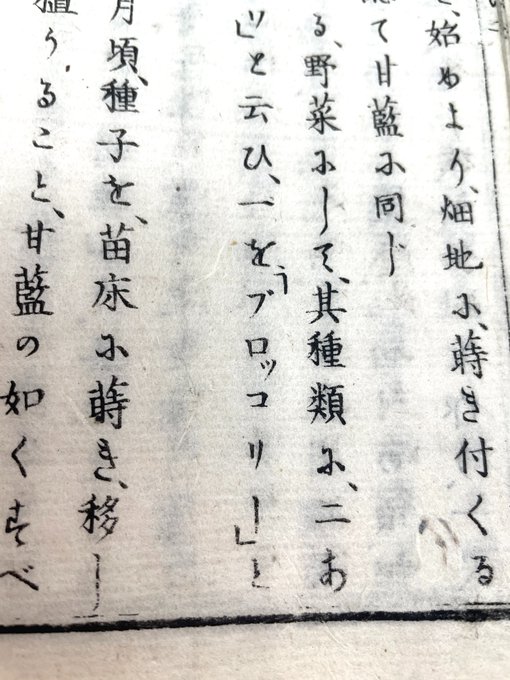 始めより、畑地に、蒔き付くる
て甘藍に同じ
る、野菜にして、其種類に、二あ
」と云ひ、一を、「ブロッコリー」と
月頃、種子を、苗床に蒔き、移し
植うること、甘藍の如くすべ